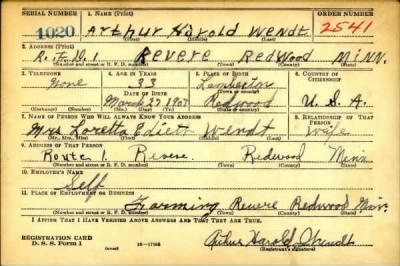 SERIAL NUMBER 1. NAME (Print) ORDER NUMBER
1020 Arthur Harold Wendt 2541
2. ADDRESS (Print)
R.F.D. 1 Revere Redwood Minn.
3. TELEPHONE 4. AGE IN YEARS 5. PLACE OF BIRTH 6. COUNTRY OF CITIZENSHIP
None 33 Lamberton
DATE OF BIRTH
March 27 1907 Redwood U.S.A.
7. NAME OF PERSON WHO WILL ALWAYS KNOW YOUR ADDRESS 8. RELATIONSHIP OF THAT PERSON
Mrs Loretta Wendt Wife
9. ADDRESS OF THAT PERSON
Route 1. Revere. Redwood Minn
(Number and street or R. F. D. number) (Town) (County) (State)
10. EMPLOYER'S NAME
Self
11. PLACE OF EMPLOYMENT OR BUSINESS
Farming Revere Redwood Minn.
(Number and street or R. F. D. number) (Town) (County) (State)
I AFFIRM THAT I HAVE VERIFIED ABOVE ANSWERS AND THAT THEY ARE TRUE.
REGISTRATION CARD
D. S. S. Form 1 Arthur Harold Wendt
(Registrant's signature)